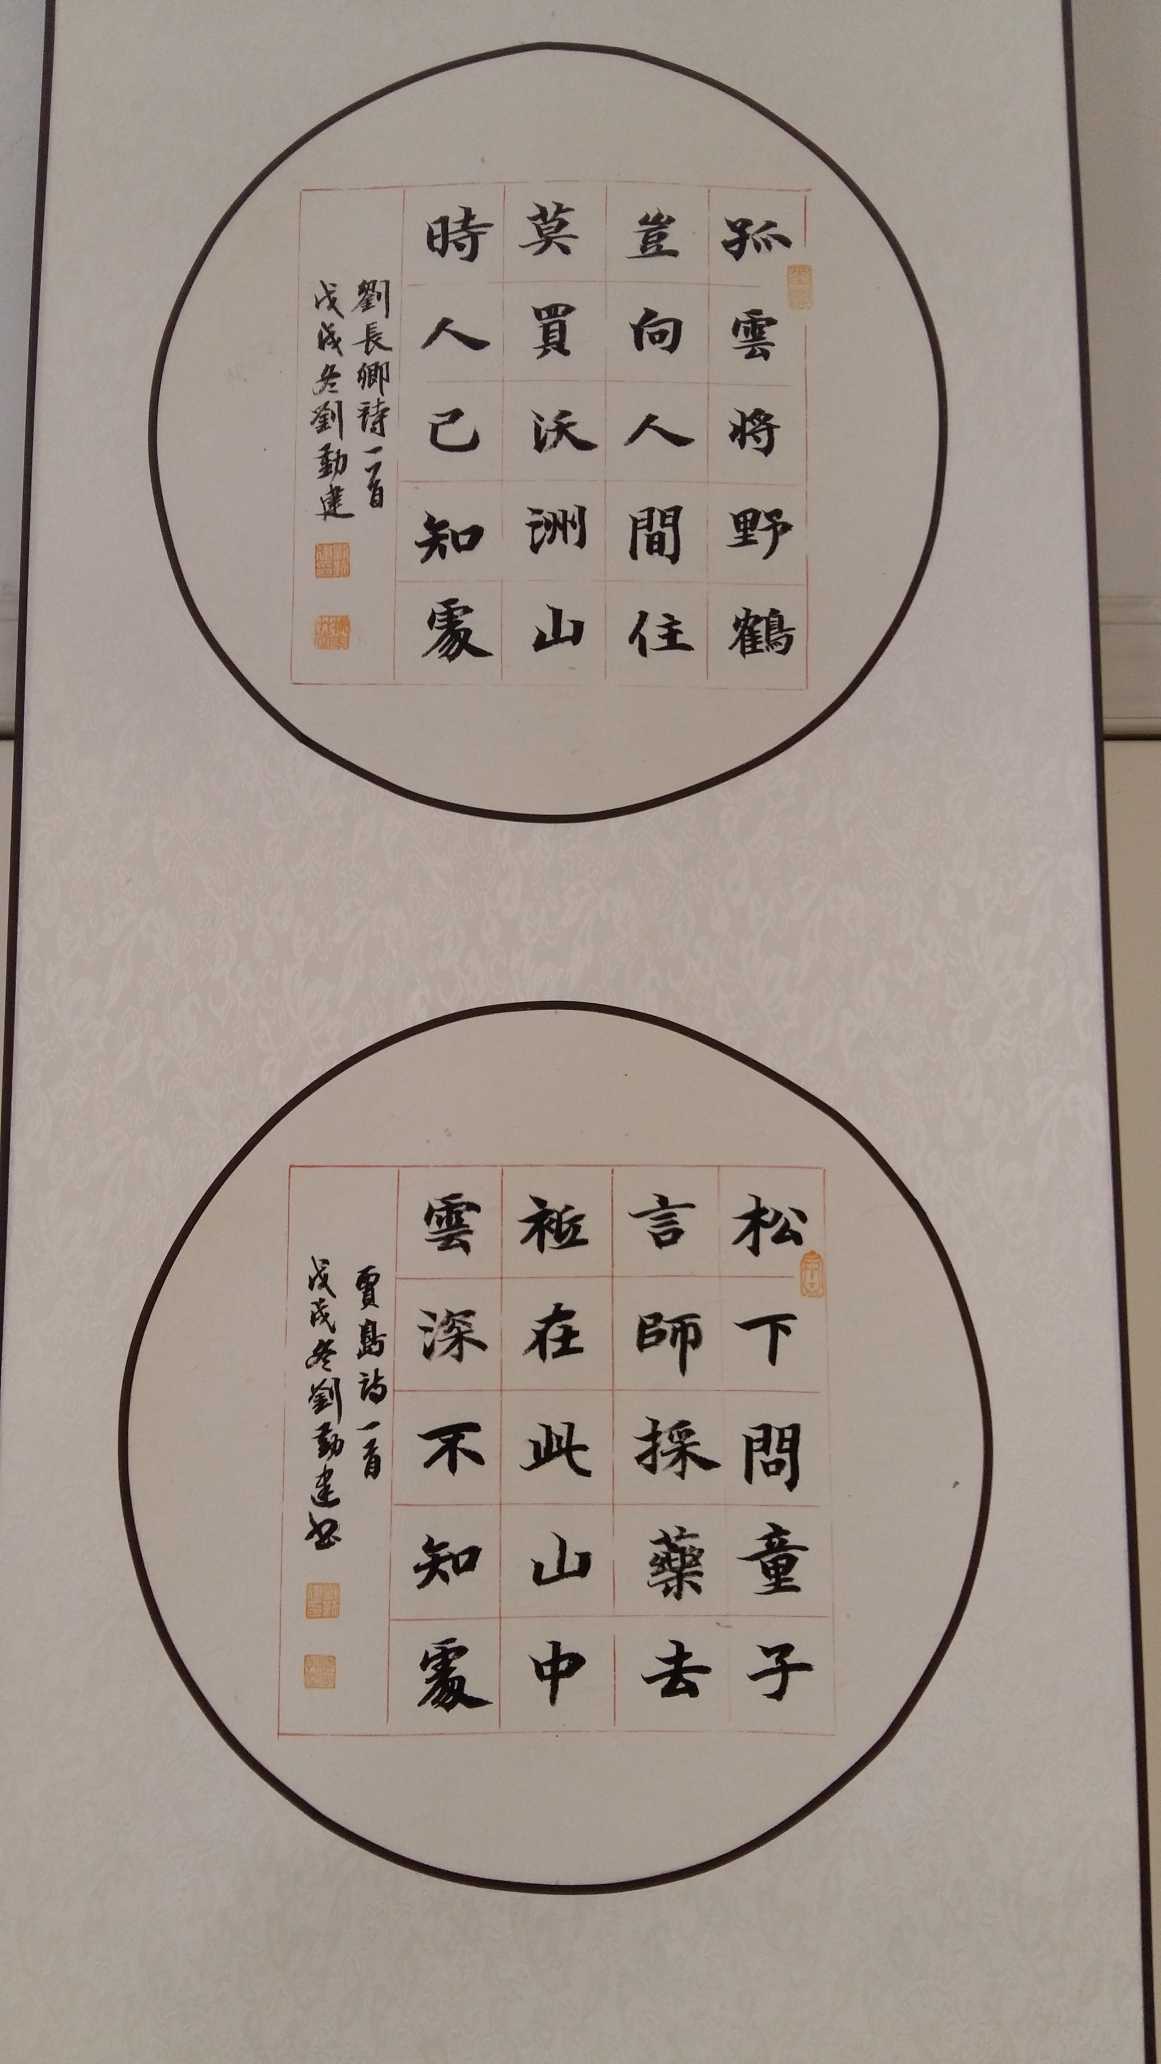 孤雲將野鶴
豈向人間住
莫買沃洲山
時人已知處
劉長卿詩一首
戊戌冬劉勤建
松下問童子
言師採藥去
祗在此山中
雲深不知處
賈島詩一首
戊戌冬劉勤建書